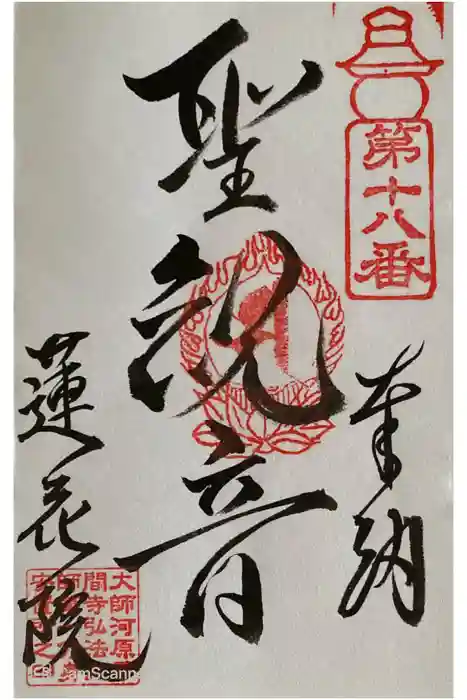 第十八番
奉納
聖観音
蓮花院
大師河原
間寺弘法
CS CamScanner